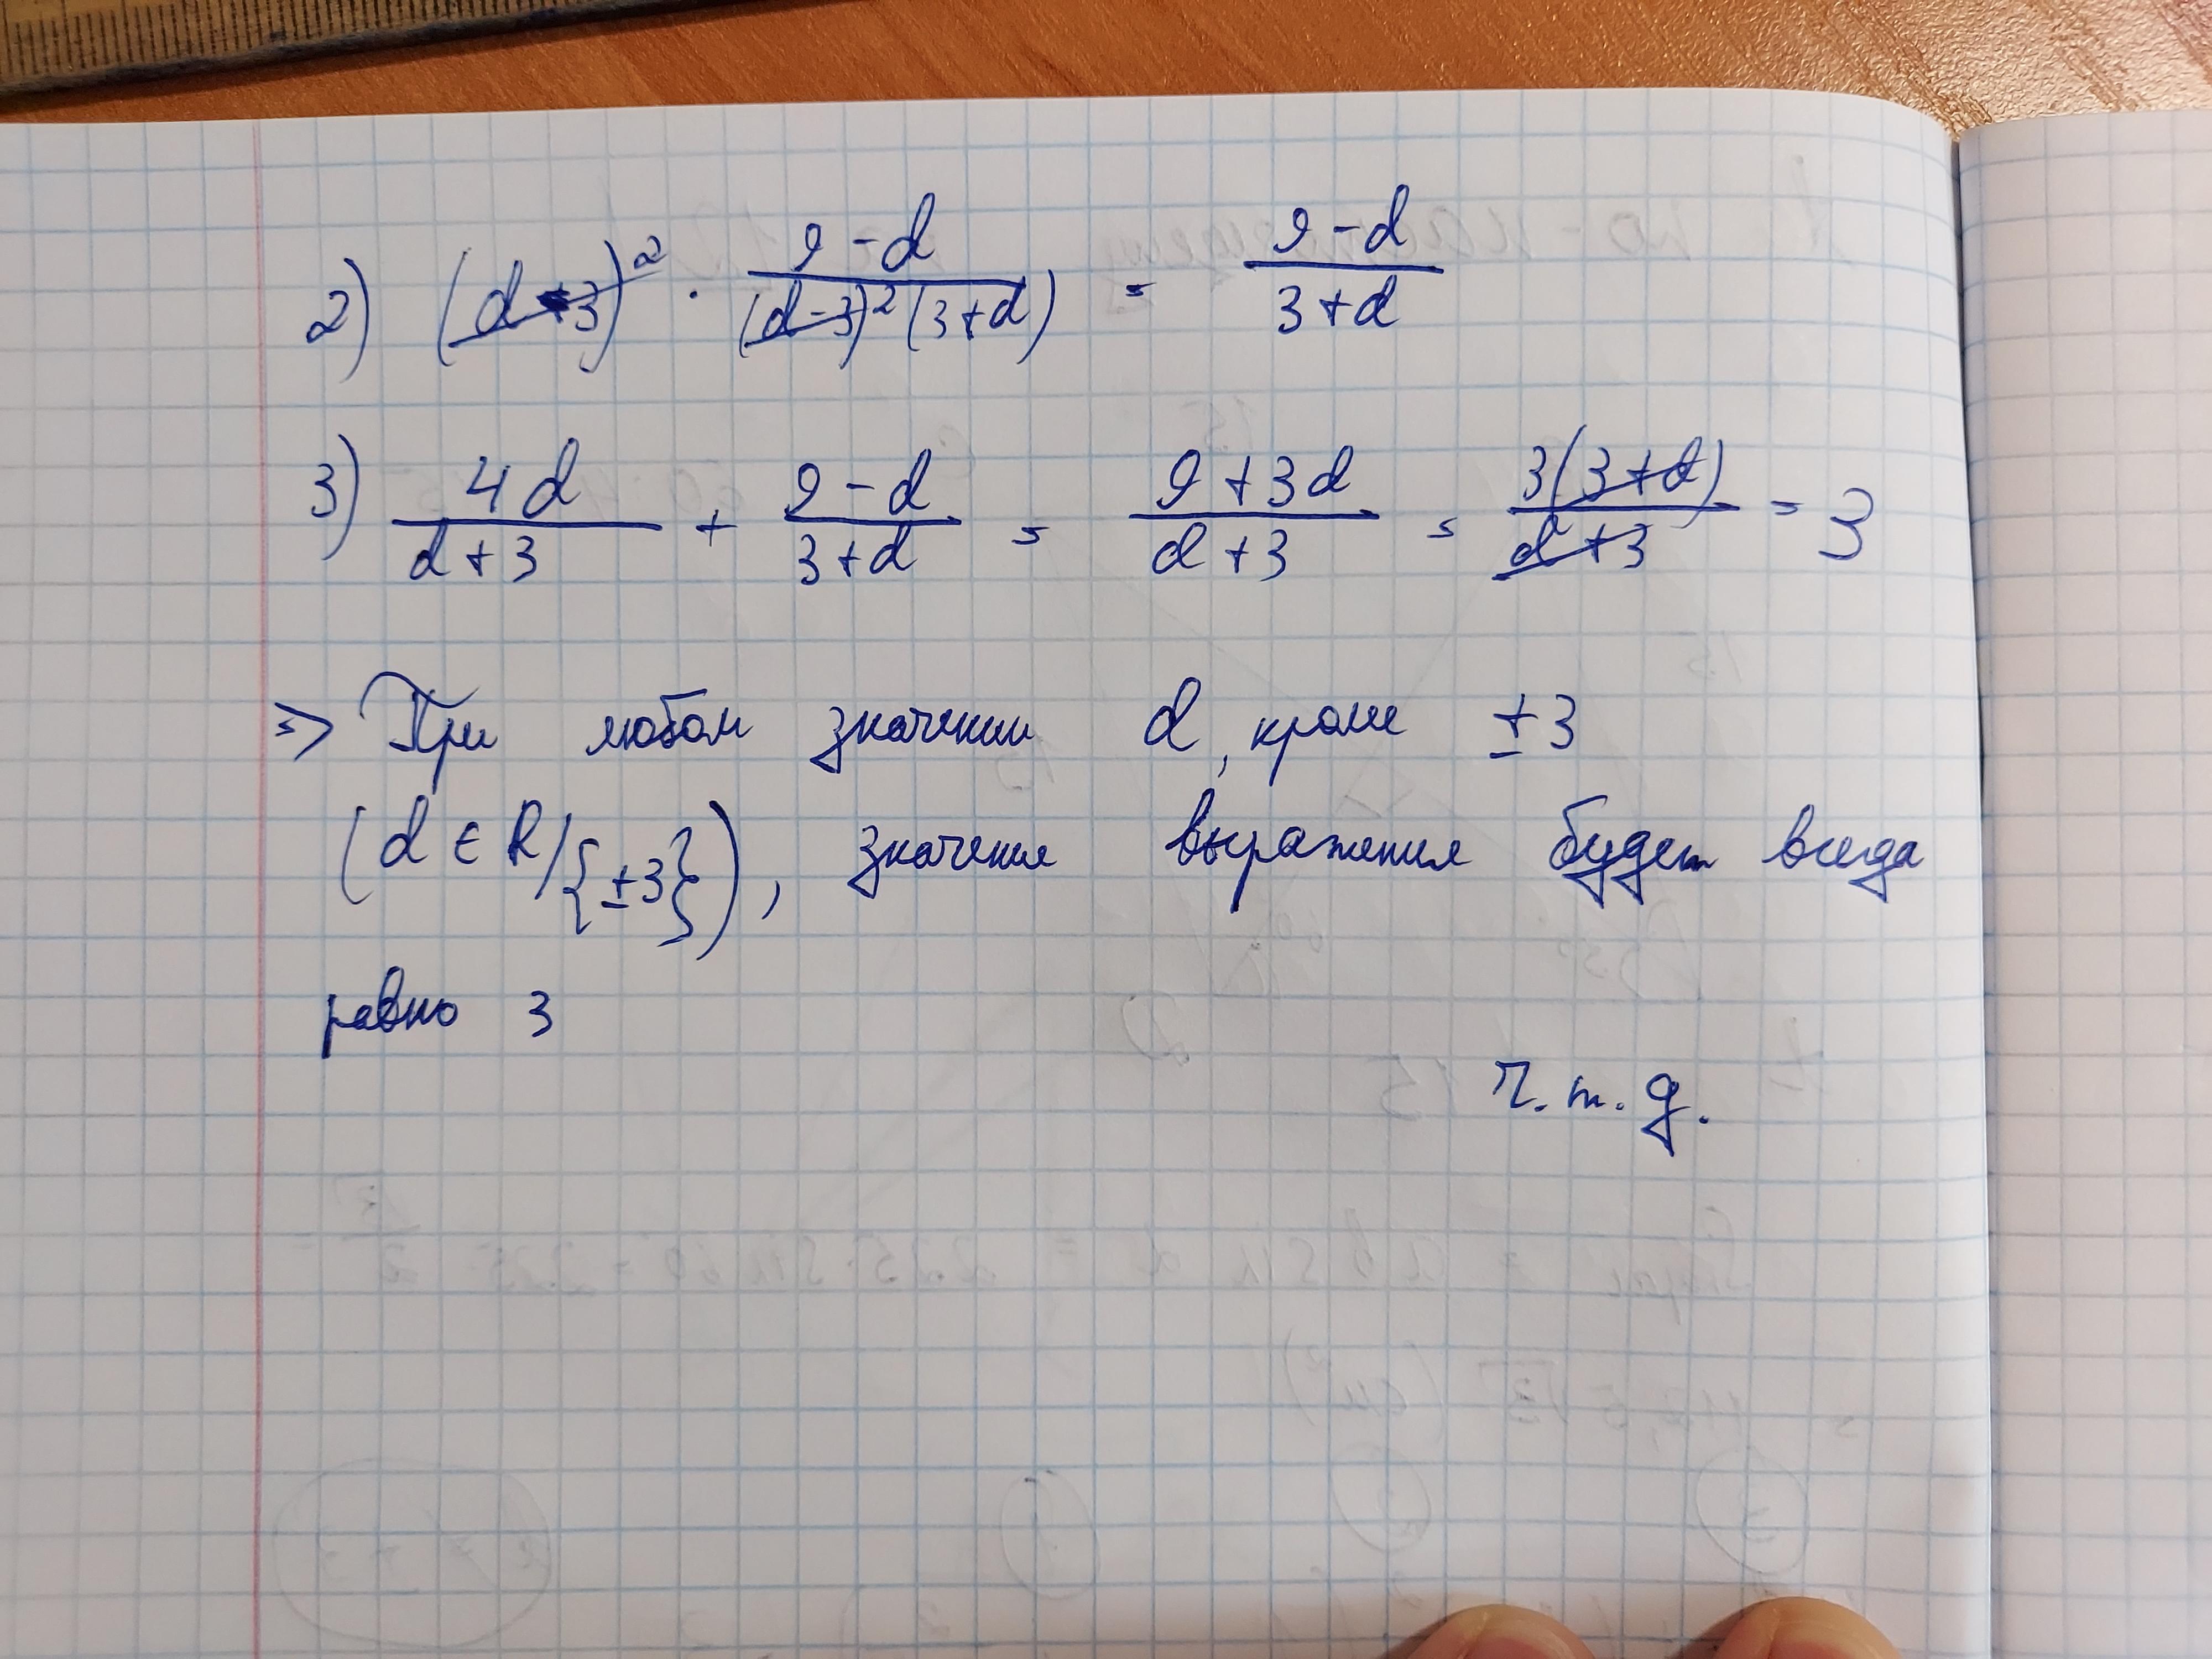 2) (d-3)² · (9-d)/((d-3)²(3+d)) = (9-d)/(3+d)
3) 4d/(d+3) + (9-d)/(3+d) = (9+3d)/(d+3) = 3(3+d)/(d+3) = 3
=> При любом значении d, кроме ±3
(d ∈ R/{±3}), значение выражения будет всегда
равно 3
ч.т.д.